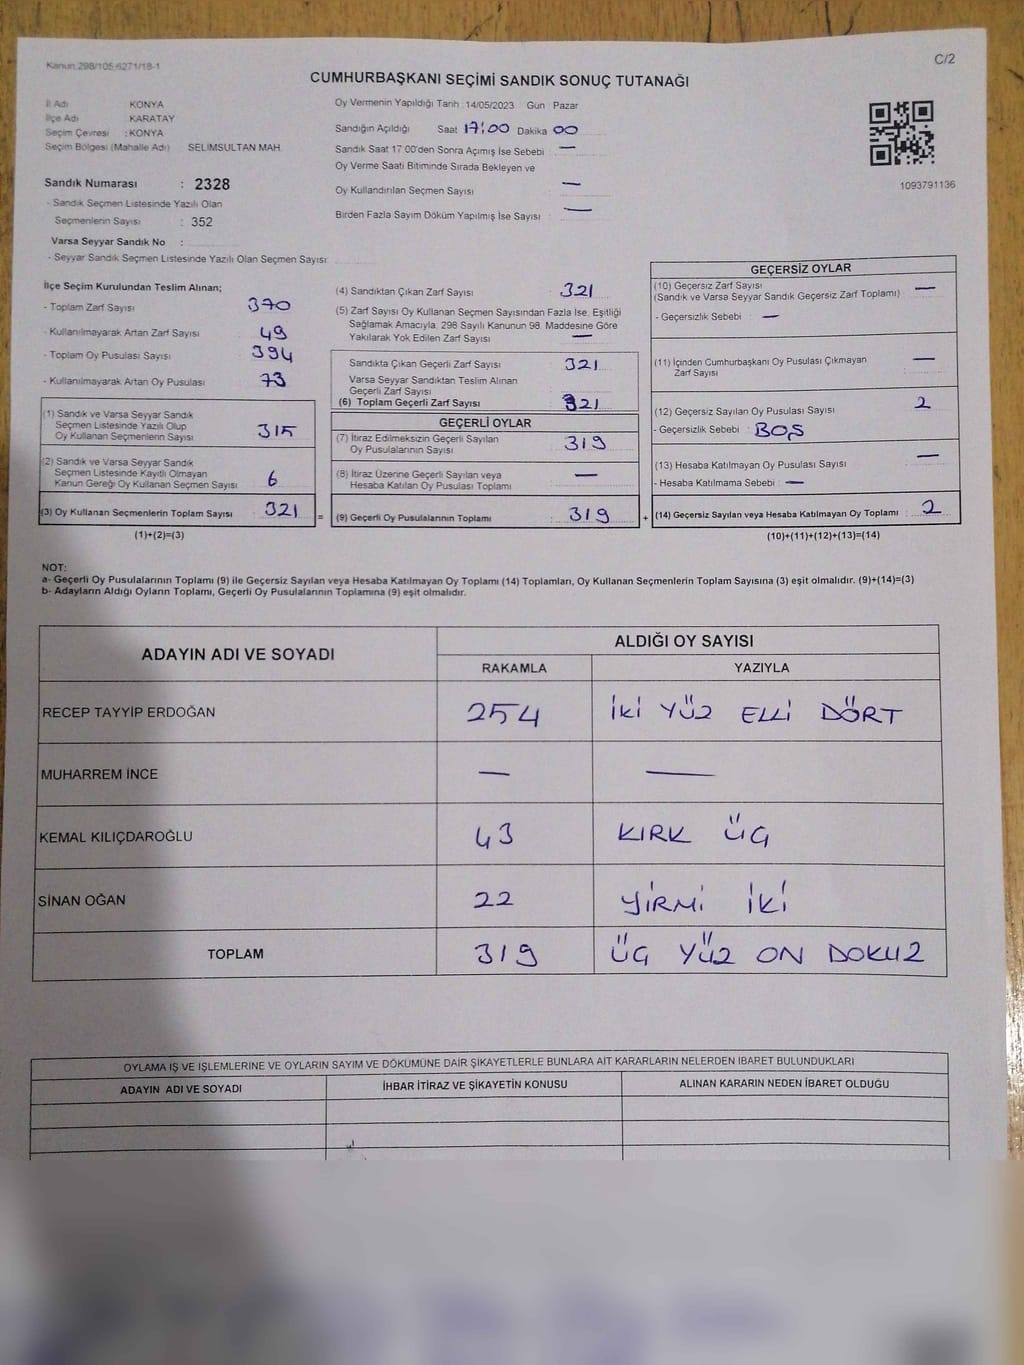 Kanun 298/105 6271/18-1
C/2
CUMHURBAŞKANI SEÇİMİ SANDIK SONUÇ TUTANAĞI
İl Adı KONYA
İlçe Adı KARATAY
Seçim Çevresi : KONYA
Seçim Bölgesi (Mahalle Adı) SELIMSULTAN MAH
Sandık Numarası : 2328
- Sandık Seçmen Listesinde Yazılı Olan
Seçmenlerin Sayısı : 352
Varsa Seyyar Sandık No :
- Seyyar Sandık Seçmen Listesinde Yazılı Olan Seçmen Sayısı
Oy Vermenin Yapıldığı Tarih 14/05/2023 Gün Pazar
Sandığın Açıldığı Saat 17:00 Dakika 00
Sandık Saat 17 00'den Sonra Açımış İse Sebebi —
Oy Verme Saati Bitiminde Sırada Bekleyen ve
Oy Kullandırılan Seçmen Sayısı —
Birden Fazla Sayım Döküm Yapılmış İse Sayısı —
1093791136
İlçe Seçim Kurulundan Teslim Alınan;
- Toplam Zarf Sayısı 370
- Kullanılmayarak Artan Zarf Sayısı 49
- Toplam Oy Pusulası Sayısı 394
- Kullanılmayarak Artan Oy Pusulası 73
(1) Sandık ve Varsa Seyyar Sandık
Seçmen Listesinde Yazılı Olup
Oy Kullanan Seçmenlerin Sayısı 315
(2) Sandık ve Varsa Seyyar Sandık
Seçmen Listesinde Kayıtlı Olmayan
Kanun Gereği Oy Kullanan Seçmen Sayısı 6
(3) Oy Kullanan Seçmenlerin Toplam Sayısı : 321 =
(1)+(2)=(3)
(4) Sandıktan Çıkan Zarf Sayısı 321
(5) Zarf Sayısı Oy Kullanan Seçmen Sayısından Fazla İse, Eşitliği
Sağlamak Amacıyla, 298 Sayılı Kanunun 98. Maddesine Göre
Yakılarak Yok Edilen Zarf Sayısı —
Sandıkta Çıkan Geçerli Zarf Sayısı 321
Varsa Seyyar Sandıktan Teslim Alınan
Geçerli Zarf Sayısı
(6) Toplam Geçerli Zarf Sayısı 321
GEÇERLİ OYLAR
(7) İtiraz Edilmeksizin Geçerli Sayılan
Oy Pusulalarının Sayısı 319
(8) İtiraz Üzerine Geçerli Sayılan veya
Hesaba Katılan Oy Pusulası Toplamı —
(9) Geçerli Oy Pusulalarının Toplamı 319 +
GEÇERSİZ OYLAR
(10) Geçersiz Zarf Sayısı
(Sandık ve Varsa Seyyar Sandık Geçersiz Zarf Toplamı) —
- Geçersizlik Sebebi : —
(11) İçinden Cumhurbaşkanı Oy Pusulası Çıkmayan
Zarf Sayısı —
(12) Geçersiz Sayılan Oy Pusulası Sayısı 2
- Geçersizlik Sebebi : BOŞ
(13) Hesaba Katılmayan Oy Pusulası Sayısı —
- Hesaba Katılmama Sebebi : —
(14) Geçersiz Sayılan veya Hesaba Katılmayan Oy Toplamı 2
(10)+(11)+(12)+(13)=(14)
NOT:
a- Geçerli Oy Pusulalarının Toplamı (9) ile Geçersiz Sayılan veya Hesaba Katılmayan Oy Toplamı (14) Toplamları, Oy Kullanan Seçmenlerin Toplam Sayısına (3) eşit olmalıdır. (9)+(14)=(3)
b- Adayların Aldığı Oyların Toplamı, Geçerli Oy Pusulalarının Toplamına (9) eşit olmalıdır.
ADAYIN ADI VE SOYADI ALDIĞI OY SAYISI
RAKAMLA YAZIYLA
RECEP TAYYİP ERDOĞAN 254 İKİ YÜZ ELLİ DÖRT
MUHARREM İNCE — —
KEMAL KILIÇDAROĞLU 43 KIRK ÜÇ
SİNAN OĞAN 22 YİRMİ İKİ
TOPLAM 319 ÜÇ YÜZ ON DOKUZ
OYLAMA İŞ VE İŞLEMLERİNE VE OYLARIN SAYIM VE DÖKÜMÜNE DAİR ŞİKAYETLERLE BUNLARA AİT KARARLARIN NELERDEN İBARET BULUNDUKLARI
ADAYIN ADI VE SOYADI İHBAR İTİRAZ VE ŞİKAYETİN KONUSU ALINAN KARARIN NEDEN İBARET OLDUĞU